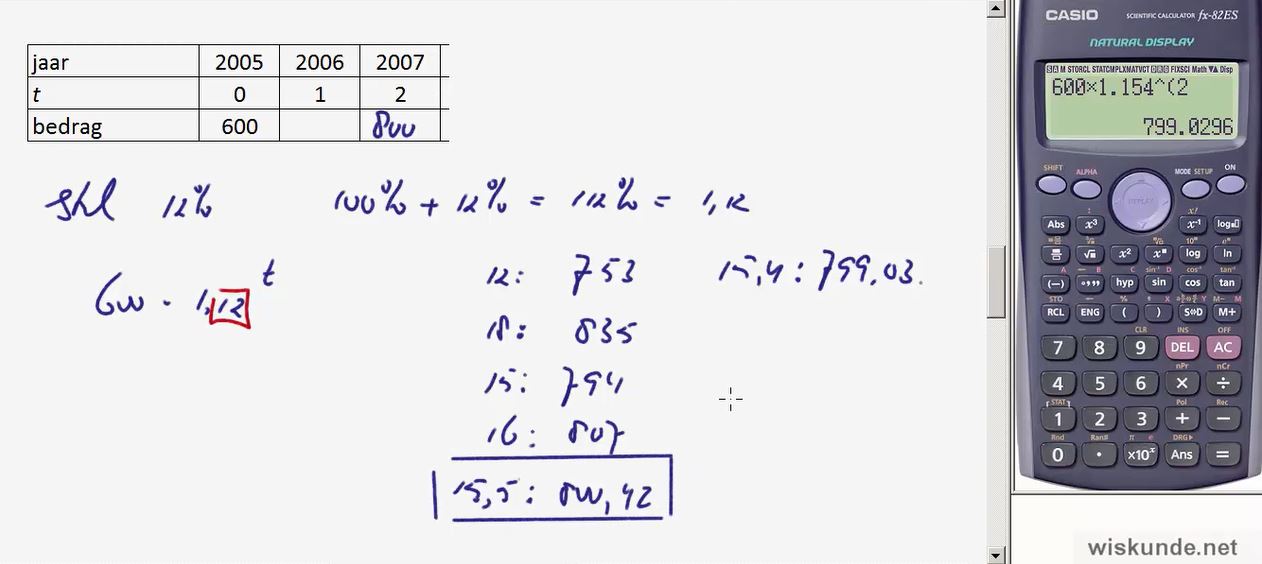 jaar 2005 2006 2007
t 0 1 2
bedrag 600 800
stel 12% 100% + 12% = 112% = 1,12
600 · 1,12 t
12: 753 15,4: 799,03.
18: 835
15: 794
16: 807
15,5: 800,42
CASIO SCIENTIFIC CALCULATOR fx-82ES
NATURAL DISPLAY
600×1.154^(2
799.0296
SHIFT ALPHA MODE SETUP ON
REPLAY
Abs x³ x⁻¹ log
√ x² log ln
(−) hyp sin cos tan
RCL ENG ( ) S⇔D M+
7 8 9 DEL AC
4 5 6 × ÷
1 2 3 + −
0 · ×10ˣ Ans =
wiskunde.net